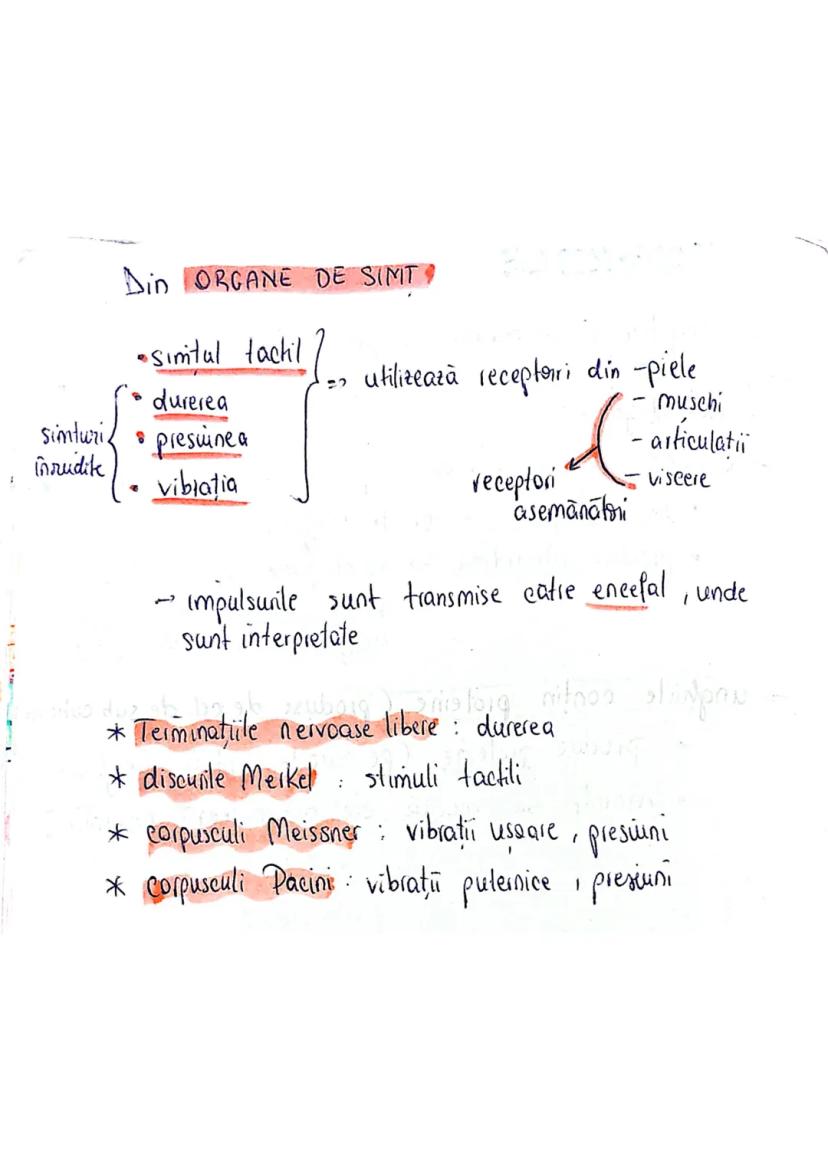 Din ORGANE DE SIMȚ
• simțul tactil
• durerea
• presiunea
• vibrația
simțuri
înrudite
=> utilizează receptori din - piele
- mușchi
- articulații
- viscere
receptori
asemănători
→ impulsurile sunt transmise către encefal, unde
sunt interpretate
* Terminațiile nervoase libere : durerea
* discurile Merkel : stimuli tactili
* corpusculi Meissner : vibrații ușoare, presiuni
* corpusculi Pacini : vibrații puternice, presiuni